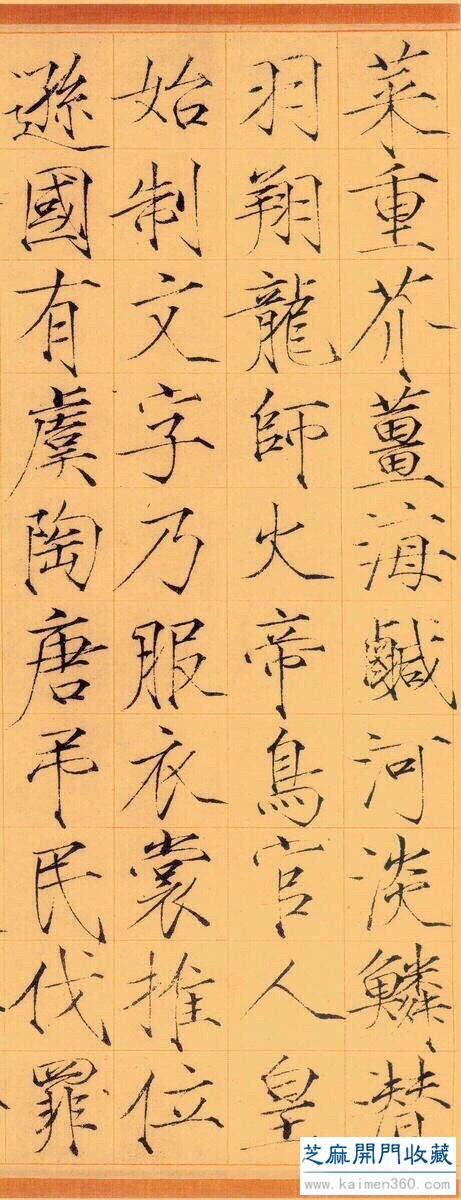 菜重芥薑海鹹河淡鱗潛
羽翔龍師火帝鳥官人皇
始制文字乃服衣裳推位
遜國有虞陶唐弔民伐罪
芝麻開門收藏
www.kaimen360.com